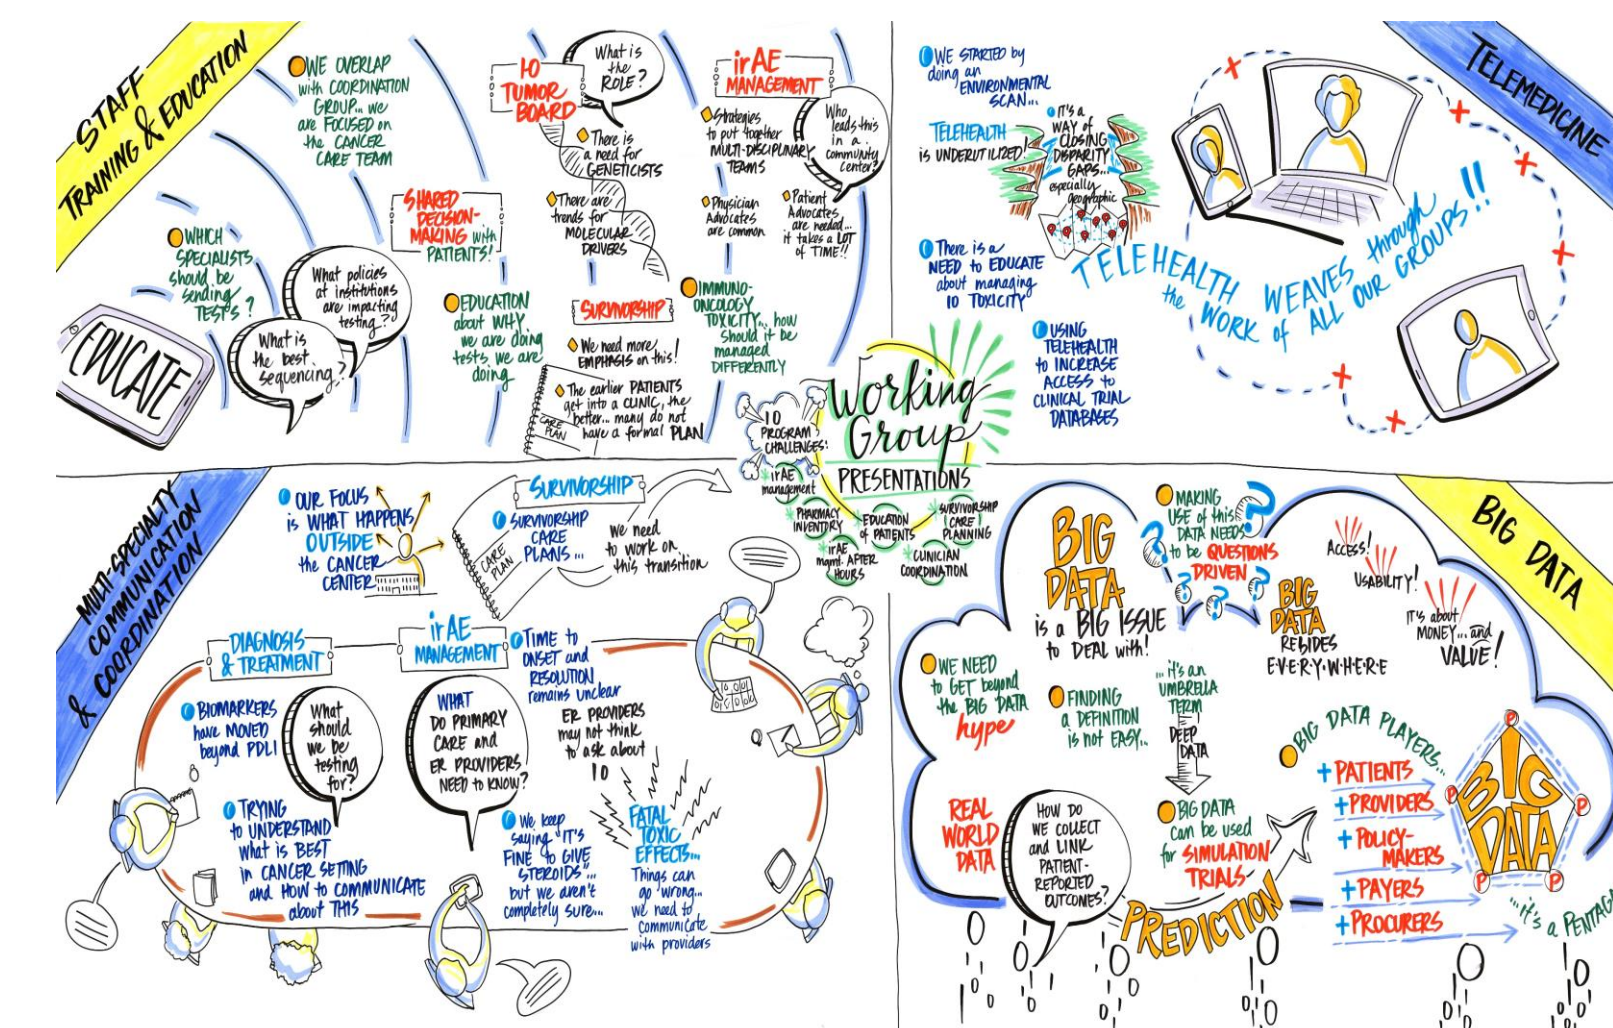 STAFF
TRAINING & EDUCATION
WE OVERLAP
with COORDINATION
GROUP... we
are FOCUSED on
the CANCER
CARE TEAM
WHICH
SPECIALISTS
should be
sending
TESTS?
What policies
at institutions
are impacting
testing..?
What is
the best
sequencing?
EDUCATE
SHARED
DECISION-
MAKING with
PATIENTS!
EDUCATION
about WHY
we are doing
tests we are
doing
IO
TUMOR
BOARD
What is
the
ROLE?
There is
a need for
GENETICISTS
There are
trends for
MOLECULAR
DRIVERS
SURVIVORSHIP
We need more
EMPHASIS on this!
The earlier PATIENTS
get into a CLINIC, the
better... many do not
have a formal PLAN
CARE
PLAN
irAE
MANAGEMENT
Strategies
to put together
MULTI-DISCIPLINARY
TEAMS
Who
leads this
in a
community
center?
Physician
Advocates
are common
Patient
Advocates
are needed...
it takes a LOT
of TIME!!
IMMUNO-
ONCOLOGY
TOXICITY... how
should it be
managed
DIFFERENTLY
TELEMEDICINE
WE STARTED by
doing an
ENVIRONMENTAL
SCAN...
TELEHEALTH
is UNDERUTILIZED!
IT'S a
WAY of
CLOSING
DISPARITY
GAPS...
especially
geographic
There is a
NEED to EDUCATE
about managing
IO TOXICITY
USING
TELEHEALTH
to INCREASE
ACCESS to
CLINICAL TRIAL
DATABASES
TELEHEALTH WEAVES through
the WORK of ALL OUR GROUPS!!
Working
Group
PRESENTATIONS
IO
PROGRAM
CHALLENGES!
irAE
management
PHARMACY
INVENTORY
EDUCATION
of PATIENTS
SURVIVORSHIP
CARE
PLANNING
irAE
mgmt. AFTER
HOURS
CLINICIAN
COORDINATION
MULTI-SPECIALTY
COMMUNICATION
& COORDINATION
OUR FOCUS
is WHAT HAPPENS
OUTSIDE
the CANCER
CENTER
SURVIVORSHIP
CARE
PLAN
SURVIVORSHIP
CARE
PLANS...
We need
to work on
this transition
DIAGNOSIS
& TREATMENT
BIOMARKERS
have MOVED
beyond PDL1
What
should
we be
testing
for?
TRYING
to UNDERSTAND
what is BEST
in CANCER SETTING
and HOW to COMMUNICATE
about THIS
irAE
MANAGEMENT
WHAT
DO PRIMARY
CARE and
ER PROVIDERS
NEED to KNOW?
TIME to
ONSET and
RESOLUTION
remains unclear
ER PROVIDERS
may not think
to ask about
IO
We keep
saying "IT'S
FINE to GIVE
STEROIDS"...
but we aren't
completely sure...
FATAL
TOXIC
EFFECTS...
Things can
go wrong...
we need to
communicate
with providers
BIG DATA
BIG
DATA
is a BIG ISSUE
to DEAL with!
MAKING
USE of this
DATA NEEDS
to be QUESTIONS
DRIVEN
BIG
DATA
RESIDES
E·V·E·R·Y·W·H·E·R·E
ACCESS!
USABILITY!
IT'S about
MONEY... and
VALUE!
WE NEED
to GET beyond
the BIG DATA
hype
FINDING
a DEFINITION
is not EASY...
... it's an
UMBRELLA
TERM
DEEP
DATA
BIG DATA
can be used
for SIMULATION
TRIALS
REAL
WORLD
DATA
HOW DO
WE COLLECT
and LINK
PATIENT-
REPORTED
OUTCOMES?
PREDICTION
BIG DATA PLAYERS...
+ PATIENTS
+ PROVIDERS
+ POLICY-
MAKERS
+ PAYERS
+ PROCURERS
P
P
P
P
P
BIG
DATA
...it's a PENTAG